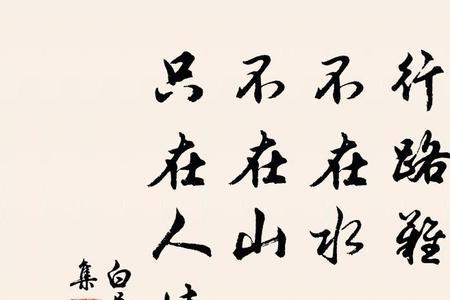 行路難
不在水
不在山
只在人
白
集